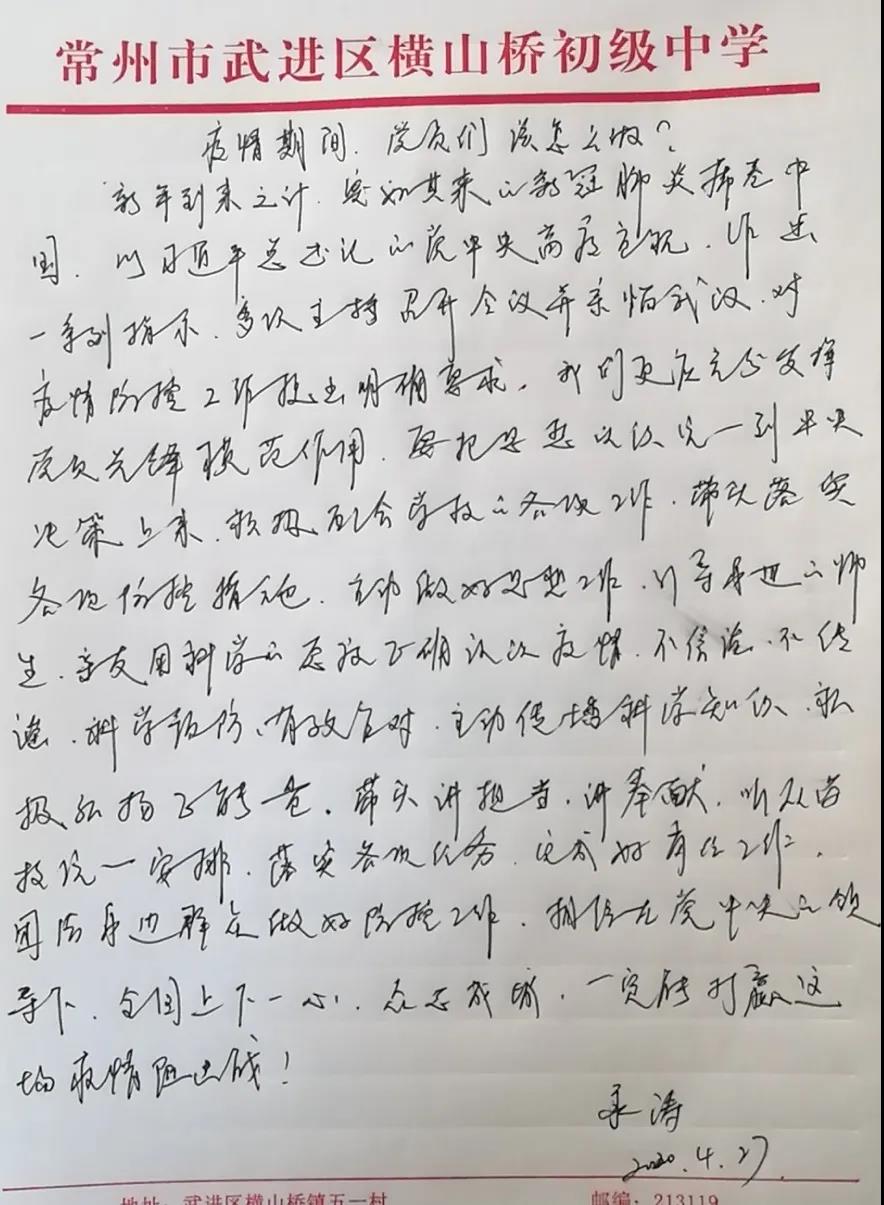 常州市武进区横山桥初级中学
疫情期间、党员们该怎么做？
新年到来之计、突如其来的新冠肺炎席卷中
国、以习近平总书记的党中央高度重视、作出
一系列指示、多次主持召开会议并亲临武汉、对
疫情防控工作提出明确要求。我们更应充分发挥
党员先锋模范作用、要把思想认识统一到中央
决策上来、积极配合学校的各项工作、带头落实
各项防控措施、主动做好思想工作、引导身边的师
生、亲友用科学的态度正确认识疫情、不信谣、不传
谣、科学预防、有效应对、主动传播科学知识、积
极弘扬正能量。带头讲担当、讲奉献、听从学
校统一安排、落实各项任务、完成好有任工作。
团结身边群众做好防控工作、相信在党中央的领
导下、全国上下一心、众志成城、一定能打赢这
场疫情阻击战！
承涛
2020.4.27
地址：武进区横山桥镇五一村 邮编：213119